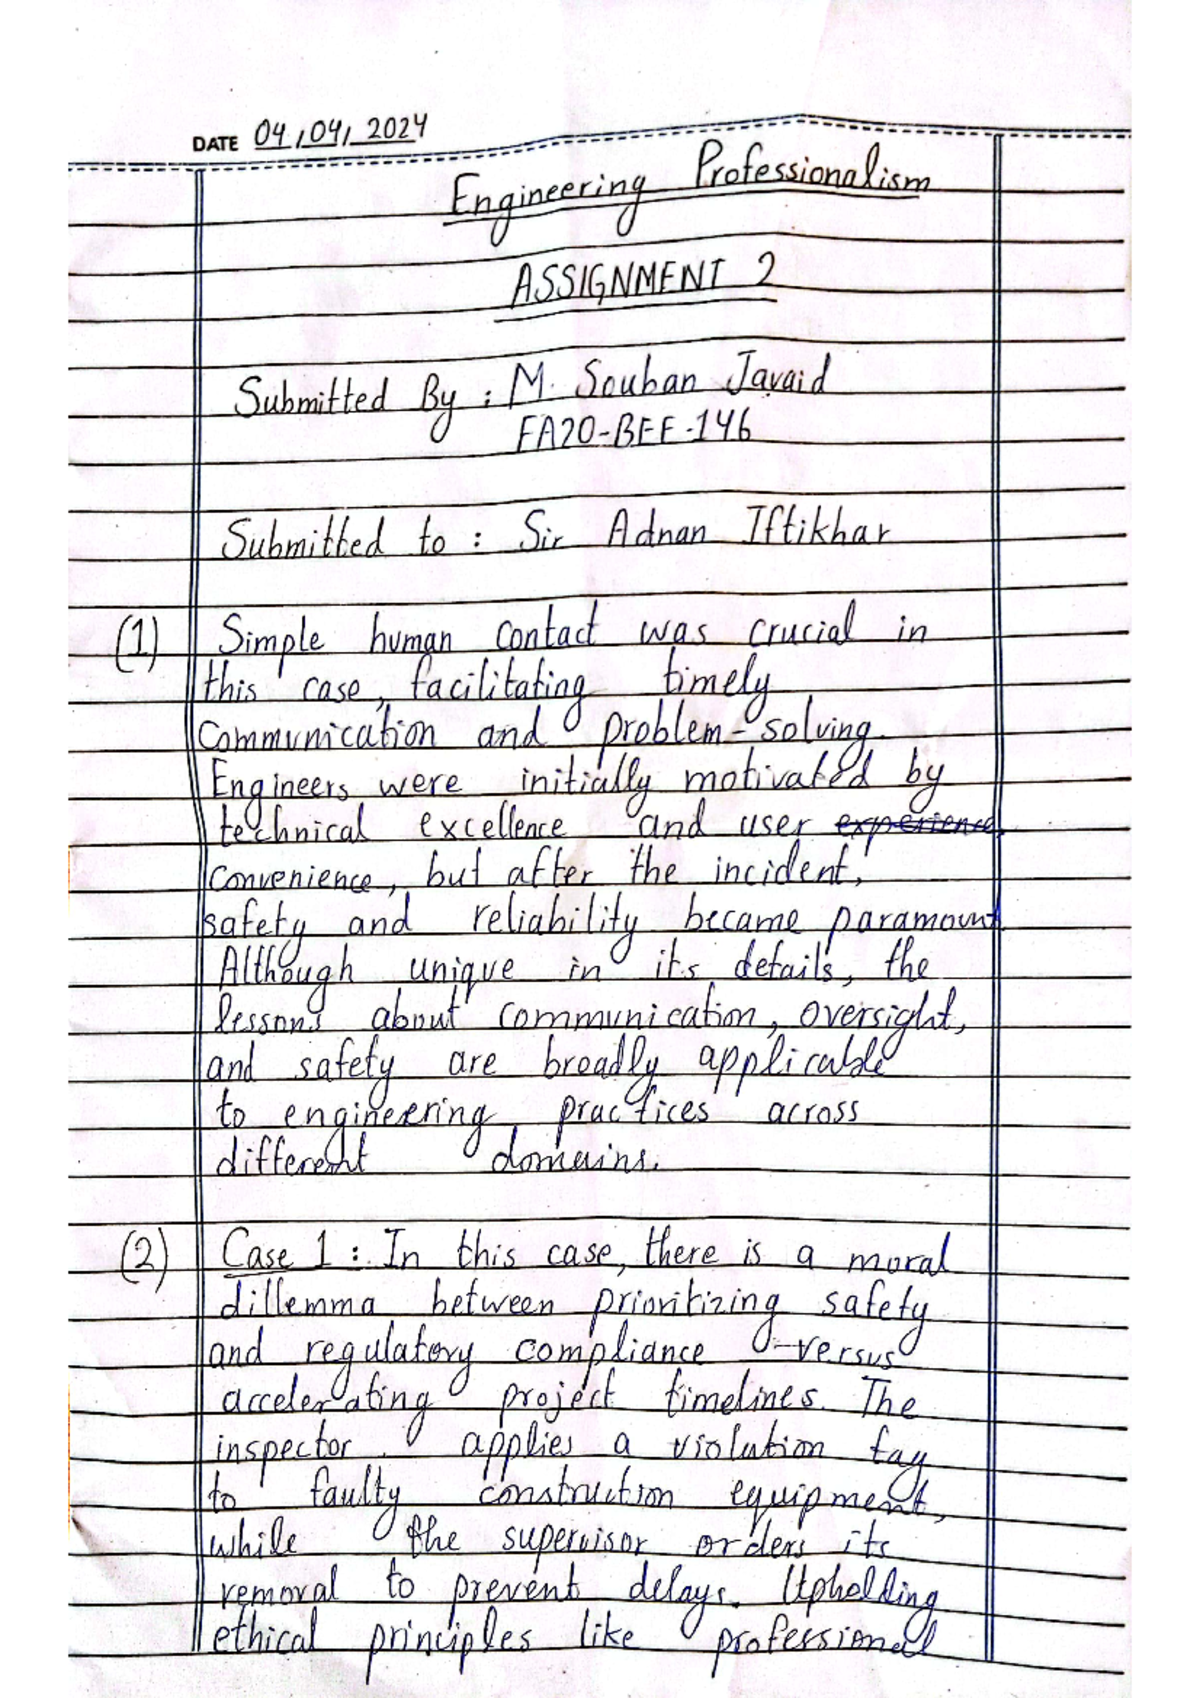 DATE 04/04/2024
Engineering Professionalism
ASSIGNMENT 2
Submitted By : M. Souban Javaid
FA20-BEE-146
Submitted to : Sir Adnan Iftikhar
(1) Simple human contact was crucial in
this case, facilitating timely
Communication and problem-solving.
Engineers were initially motivated by
technical excellence and user experience
convenience, but after the incident,
safety and reliability became paramount
Although unique in its details, the
lessons about communication, oversight,
and safety are broadly applicable
to engineering practices across
different domains.
(2) Case 1 : In this case, there is a moral
dillemma between prioritizing safety
and regulatory compliance versus
accelerating project timelines. The
inspector applies a violation tag
to faulty construction equipment,
while the supervisor orders its
removal to prevent delays. Upholding
ethical principles like professional